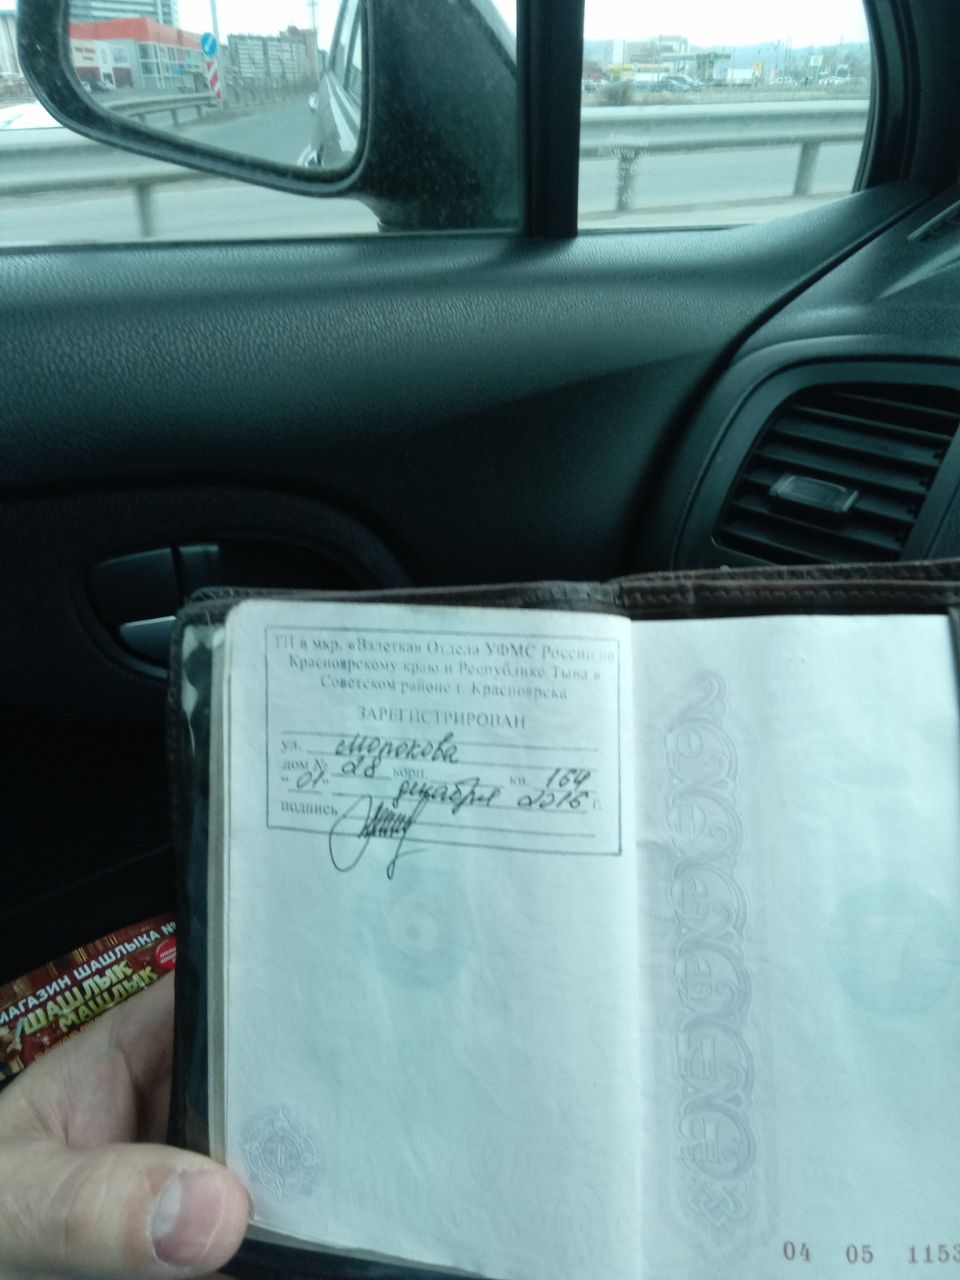 ТП в мкр. «Взлетка» Отдела УФМС России по
Красноярскому краю и Республике Тыва в
Советском районе г. Красноярска
ЗАРЕГИСТРИРОВАН
ул. Молокова
дом № 28 корп. кв. 164
"01" декабря 2016 г.
подпись
МАГАЗИН ШАШЛЫКА №
ШАШЛЫК
МАШЛЫК
04 05 1153